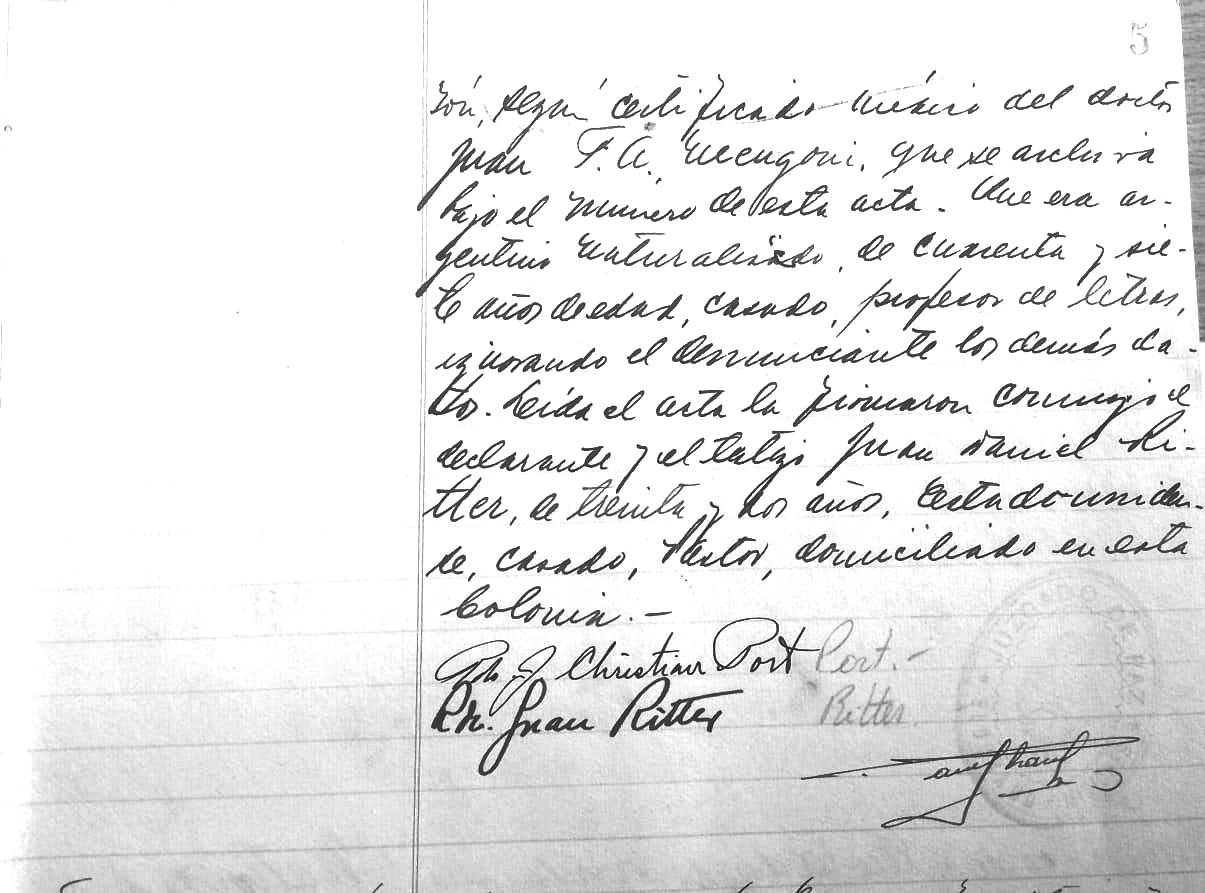 5
zón, según certificado médico del doctor
Juan F. A. que se archiva
bajo el número de esta acta. Que era ar-
gentino naturalizado, de cuarenta y sie-
te años de edad, casado, profesor de letras,
ignorando el denunciante los demás da-
tos. Leída el acta la firmaron conmigo el
declarante y el testigo Juan Daniel Ri-
tter, de treinta y dos años, Estadouniden-
se, casado, Pastor, domiciliado en esta
Colonia. —
J. Christian Port Port. —
Juan Ritter Ritter